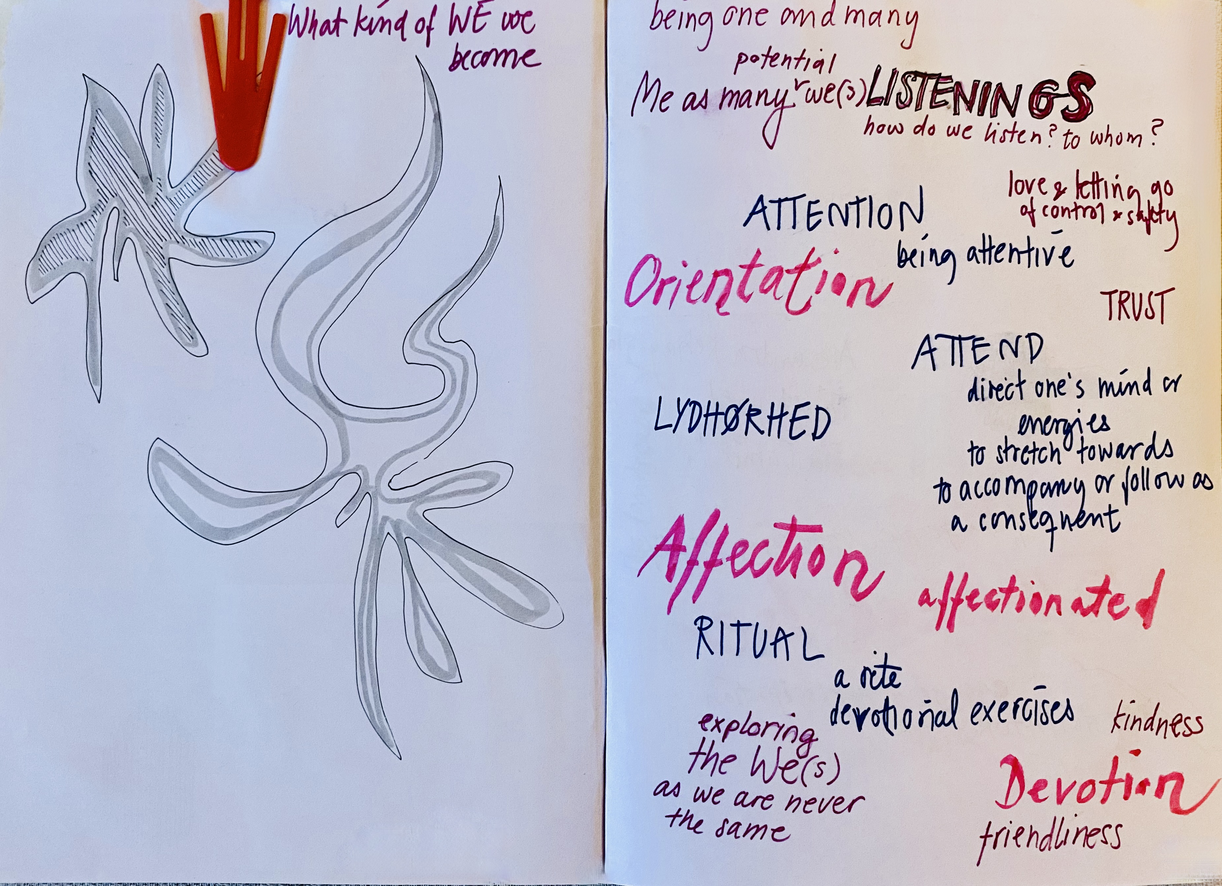 What kind of WE we
become
being one and many
potential
Me as many we(s) LISTENINGS
how do we listen? to whom?
love & letting go
of control & safety
ATTENTION
being attentive
Orientation
TRUST
ATTEND
direct one's mind or
energies
to stretch towards
to accompany or follow as
a consequent
LYDHØRHED
Affection
affectionated
RITUAL
a rite
devotional exercises
kindness
exploring
the We(s)
as we are never
the same
Devotion
friendliness